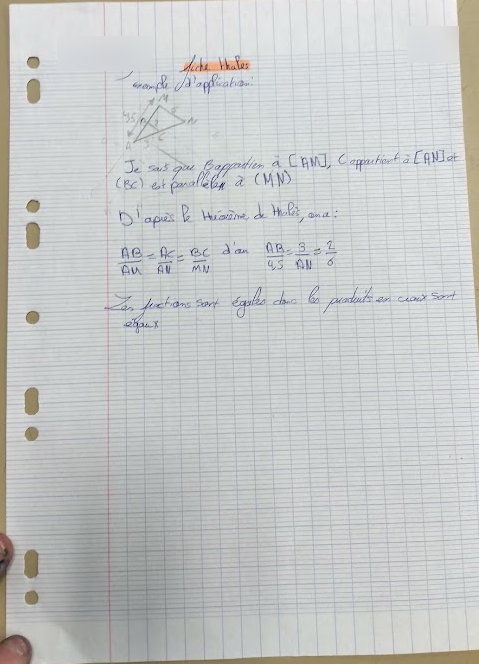 fiche thales
exemple d'application:
M
4,5
6
B
2
N
A
3
C
Je sais que B appartien à [AM], C appartient à [AN] et
(BC) est parallèles à (MN)
D'après le théorème de thalès, on a:
AB/AM = AC/AN = BC/MN d'où AB/4,5 = 3/AN = 2/6
Les fractions sont égales donc les produits en croix sont
égaux